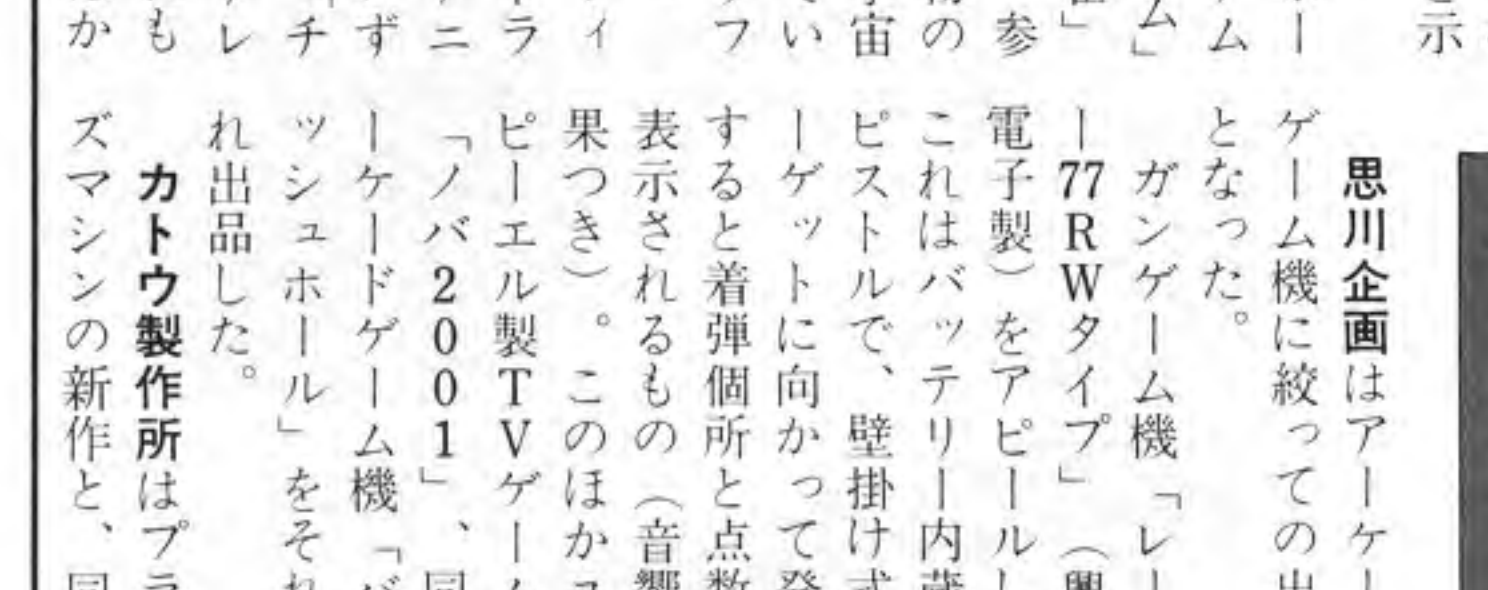 示
ー
ム
ム」
」
参
の
宙
い
フ
ィ
ラ
ニ
ず
チ
レ
も
か
思川企画はアーケー
ゲーム機に絞っての出
となった。
ガンゲーム機「レー
ー77RWタイプ」（興
電子製）をアピールし
これはバッテリー内蔵
ピストルで、壁掛け式
ーゲットに向かって発
すると着弾個所と点数
表示されるもの（音響
果つき）。このほか
ピーエル製TVゲーム
「ノバ2001」、同
ーケードゲーム機「バ
ッシュホール」をそれ
れ出品した。
カトウ製作所はプラ
ズマシンの新作と、同